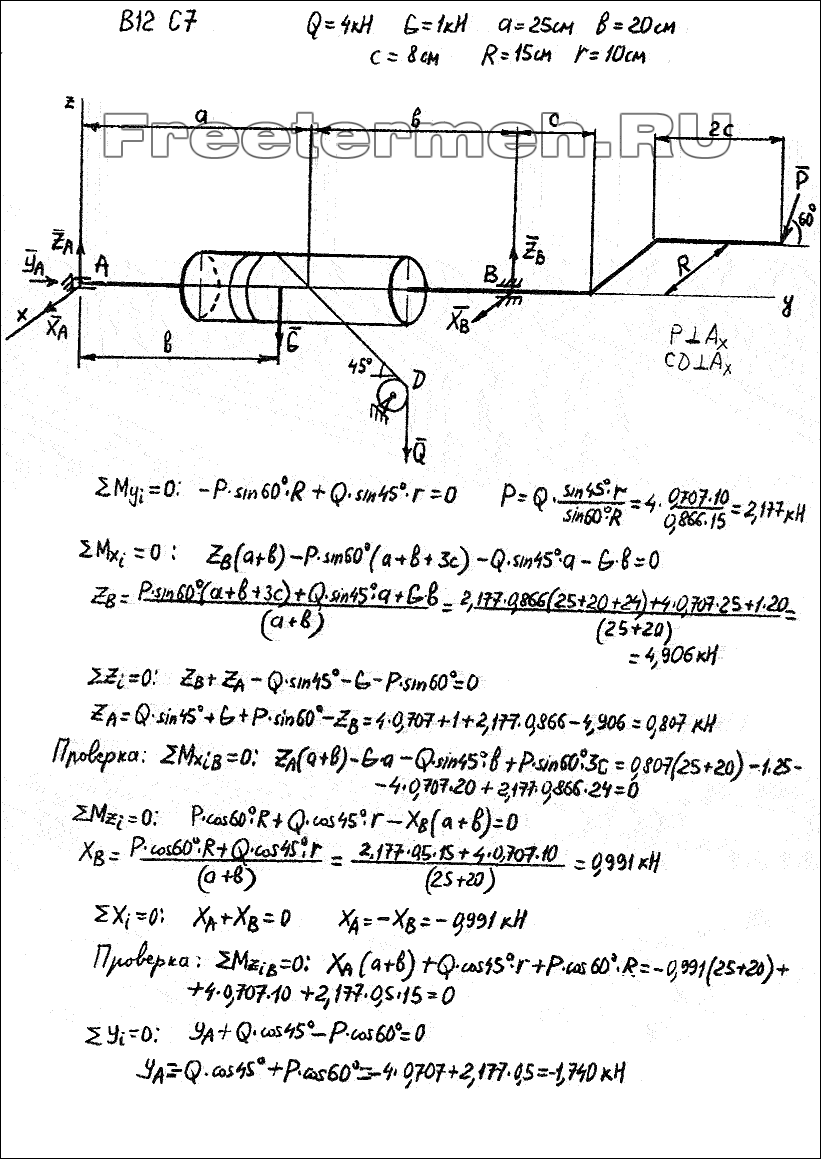 В12 С7 Q=4кН G=1кН a=25см в=20см
c=8см R=15см r=10см
Freetermeh.RU
z a в c 2c
P̅ 60°
Z̅A Y̅A A X̅A x
B Z̅B X̅B R y
в G̅
P⊥Ax
CD⊥Ax
45° D
Q̅
ΣMyi=0: -P·sin60°·R+Q·sin45°·r=0 P=Q·(sin45°·r)/(sin60°·R)=4·(0,707·10)/(0,866·15)=2,177кН
ΣMxi=0: ZB(a+в)-P·sin60°(a+в+3c)-Q·sin45°·a-G·в=0
ZB=(P·sin60°(a+в+3c)+Q·sin45°·a+G·в)/(a+в)=(2,177·0,866(25+20+24)+4·0,707·25+1·20)/(25+20)=
=4,906кН
ΣZi=0: ZB+ZA-Q·sin45°-G-P·sin60°=0
ZA=Q·sin45°+G+P·sin60°-ZB=4·0,707+1+2,177·0,866-4,906=0,807кН
Проверка: ΣMxiB=0: ZA(a+в)-G·a-Q·sin45°·в+P·sin60°·3c=0,807(25+20)-1·25-
-4·0,707·20+2,177·0,866·24=0
ΣMzi=0: P·cos60°·R+Q·cos45°·r-XB(a+в)=0
XB=(P·cos60°·R+Q·cos45°·r)/(a+в)=(2,177·0,5·15+4·0,707·10)/(25+20)=0,991кН
ΣXi=0: XA+XB=0 XA=-XB=-0,991кН
Проверка: ΣMziB=0: XA(a+в)+Q·cos45°·r+P·cos60°·R=-0,991(25+20)+
+4·0,707·10+2,177·0,5·15=0
ΣYi=0: YA+Q·cos45°-P·cos60°=0
YA=-Q·cos45°+P·cos60°=-4·0,707+2,177·0,5=-1,740кН